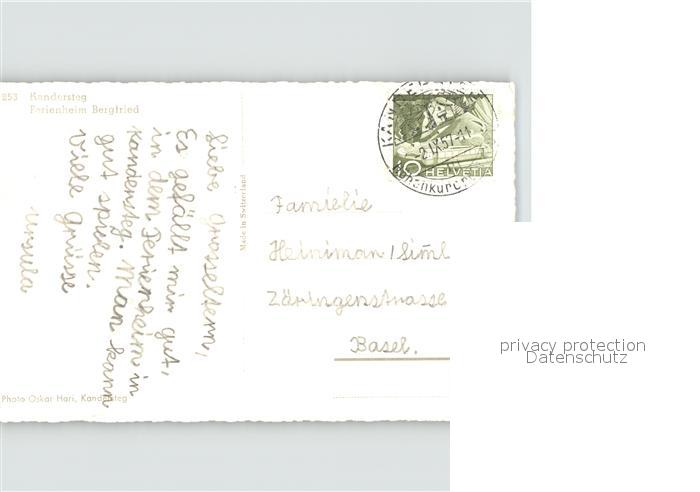 253 Kandersteg
Ferienheim Bergfried
Liebe Grosseltern,
Es gefällt mir gut,
in dem Ferienheim in
Kandersteg. Man kann
gut spielen.
Viele Grüsse
Ursula
Photo Oskar Hari, Kandersteg
Made in Switzerland
2.IX.57-11
HELVETIA
Familie
Heiniman / Siml
Züringerstrasse
Basel.
privacy protection
Datenschutz